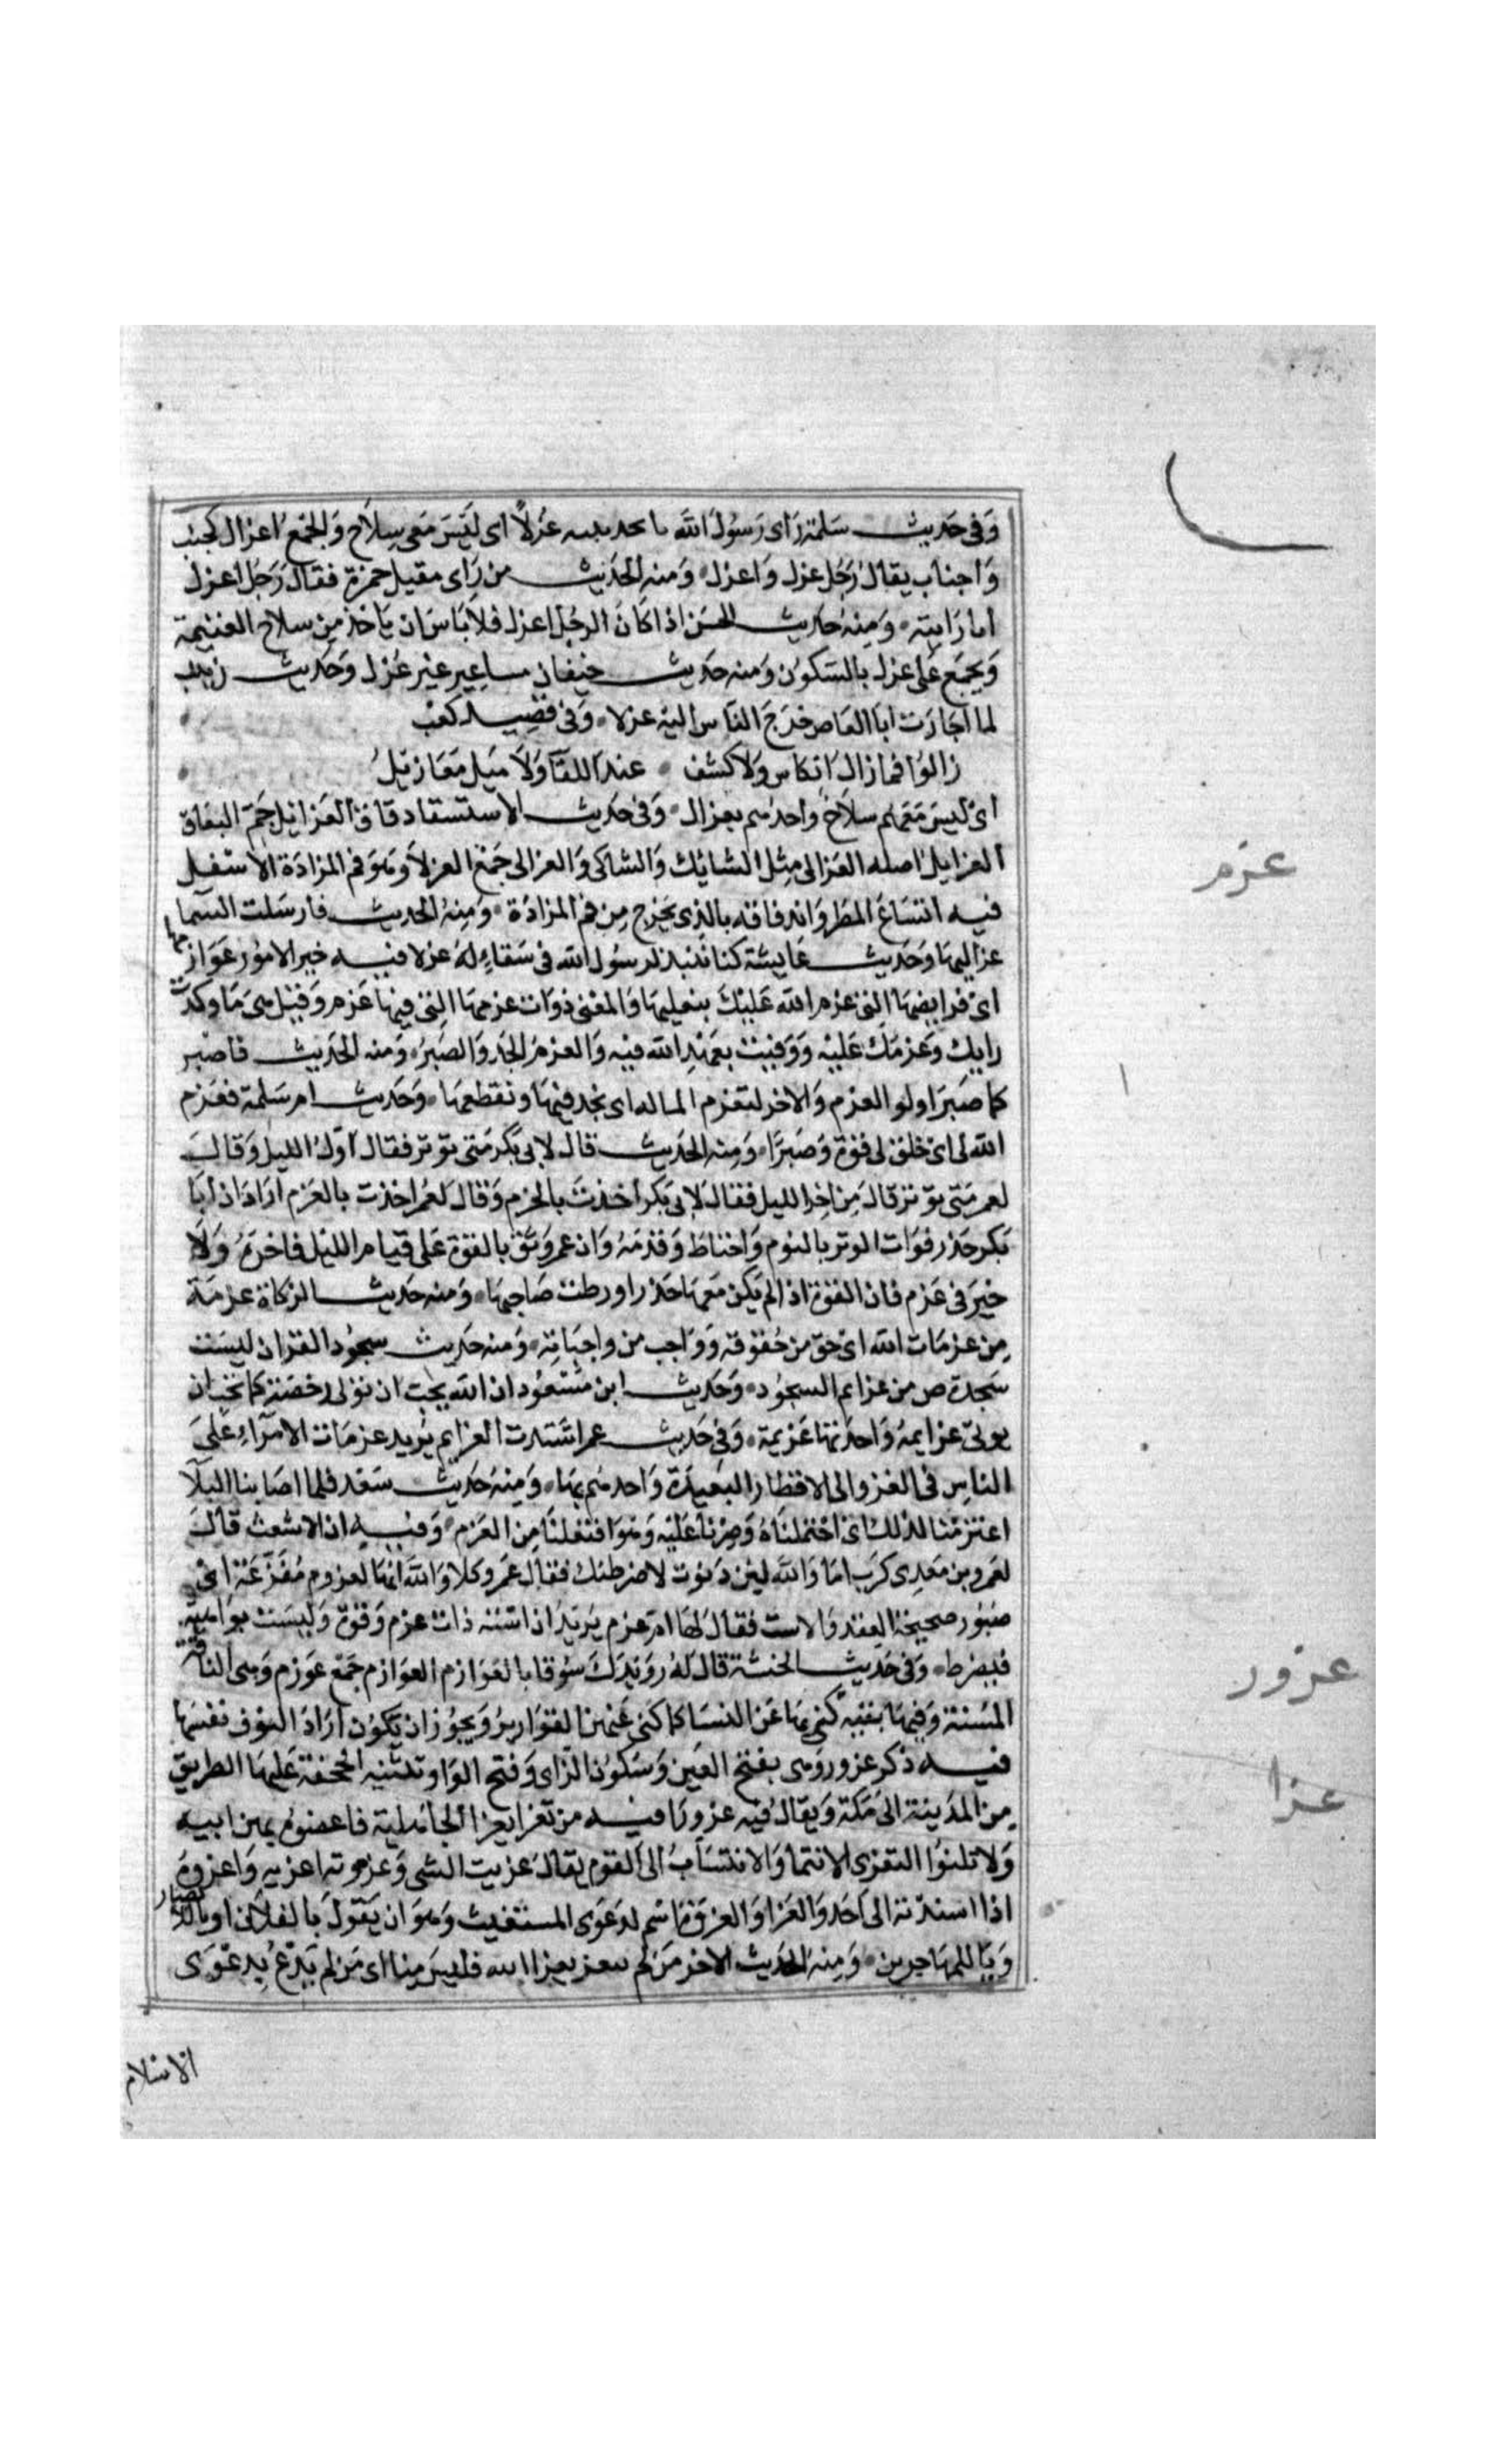 وَفى حَديث سَلمة رَاى رَسُولُ الله بالحديبيه عُزلًا اى لَيْسَ مَعى سِلاح وَالجمْعُ اعزال كجنب
وَاجناب يقال رَجُل عزل وَاعزل وَمنه الحَديث من رَاى مقيل حمزة فقال رَجُل اعزل
انا رَايته وَمِنهُ حَديث الحسَن اذا كَانَ الرجُل اعزل فلا بَاسَ ان يَاخذ مِن سلاح الغنيمة
وَيجمَع عَلى عزل بالسَكوُن وَمنه حَديث خيفان مساعير غير عُزل وَحَديث زينب
لما اجارَت ابَا العَاص خرَجَ النَاس اليه عزلا وَفى قصيد كعْب
زالوُا فما زال انكاس وَلا كشف عند اللقآ وَلا ميل مَعَازيلُ
اى ليسَ مَعَهم سلاح واحدهم معزال وَفى حَديث الاستسقا دقاق العَزايل جَمّ البعَاق
العزايل اصله العَزالى مِثل الشايك وَالشاكى وَالعزالى جَمْعُ العزلا وَهوَ فم المزادَة الاسفل
فشبه اتسَاعَ المطَر وَاندفاقه بالذى يخرج مِن فم المزادَة وَمِنهُ الحَديث فارسَلت السَما
عزاليهَا وَحَديث عَايشة كنا ننبذ لرسُول الله فى سَقاءٍ لهُ عزلا فيه خير الامُور عَوَازمها
اى فرايضهَا التى عزم الله عَليْكَ بفعلهَا وَالمعْنى ذوَات عزمهَا التى فيهَا عَزم وَقيْل هىَ مَا وكدتَ
رايك وَعَزمَك عَليْه وَوَفيت بعَهْدِ الله فيه وَالعزمُ الجد وَالصَبرُ وَمنه الحَديث فاصْبر
كما صَبَرَ اولو العزم وَالاخر لتعزم المساله اى تجد فيهَا وتقطعهَا وَحَديث ام سَلمة فعَزم
الله لى اى خلق لى قوة وَصَبرًا وَمِنه الحَديث قال لابى بَكر مَتى توتر فقال اوّلُ الليل وَقالَ
لعمر مَتى توتر قالَ مِن اخر الليل فقال لابى بَكر اخذت بالحزم وَقال لعُمرَ اخذت بالعَزم ارَادَ ان ابَا
بَكر حَذر فوَات الوتر بالنوم وَاحتاطَ وَقدّمهُ وَان عمر وَثق بالقوة عَلى قيام الليْل فاخرهُ وَلا
خيْرَ فى عَزم فان القوة اذا لم يَكن مَعهَا حَذر اورطت صَاحبهَا وَمنه حَديث الزكاة عزمَة
مِن عزمَات الله اى حَق من حُقوقه وَوَاجب من واجبَاته وَمنه حَديث سجوُد القران ليسَت
سَجدة ص من عزايم السجوُد وَحَديث ابن مَسْعُود ان الله يحب ان توتى رخصَته كما يحب ان
يوتى عزايمهُ وَاحدَتهَا عَزيمة وَفى حَديث عمر اشتدت العزايم يُريد عزمَات الامرَآءِ عَلى
الناسِ فى الغزو الى الاقطار البَعيدَة وَاحدهم بهَا وَمِنهُ حَديث سَعْد فلما اصَابنا البَلآ
اعتزمْنا لذلك اى احْتملنَاهُ وَصبرنا عَليْه وَهوَ افتعلنَا مِن العَزم وَفيه ان الاشعث قالَ
لعَمرو بن مَعْدِى كرَب امَا وَالله لئِن دَنوت لاضرطنك فقال عَمرو كلا وَالله انهَا لعزوم مُفَزَّعَة اى
صَبُور صحيحَة العقد وَالاست فقال لهَا ام عزم يَريدُ ان استه ذات عزم وَقوة وَليسَت بوَاهية
فيضرط وَفى حَديث انجشة قال لهُ رَوَيْدَكَ سُوقا بالعَوَازم العوَازم جَمْع عَوزم وَهى الناقة
المسنة وَفيهَا بَقيه كنى بهَا عَن النسَا كما كنى عَنهن بالقوَارير وَيجوُز ان يكوُن ارَادَ النوق نفسَهَا
فيه ذكر عزور وَهى بفتح العَيْن وَسَكوُن الزاى وَفتح الوَاو ثنية الجحفة عَليهَا الطريق
مِن المدَينة الى مَكة وَيقال فيه عزورَا فيه من تعزا بعزا الجَاهلية فاعضوُه بهن ابيه
وَلا تكنوُا التعزى الانتما وَالانتسَابُ الى القوم يقال عزيت الشى وَعزوته اعزيه وَاعزوهُ
اذا اسندته الى احَد وَالعَزا وَالعزوة اسْم لدعوَى المستغيث وَهوَ ان يَقولَ يا لفلان او يا للانصار
وَيا للمهَاجرين وَمِنهُ الحَديث الاخر مَن لم يتعز بعزا الله فليسَ مِنا اى مَن لم يَدْعُ بِدعْوَى
الاسلام
عزم
عزور
عزا